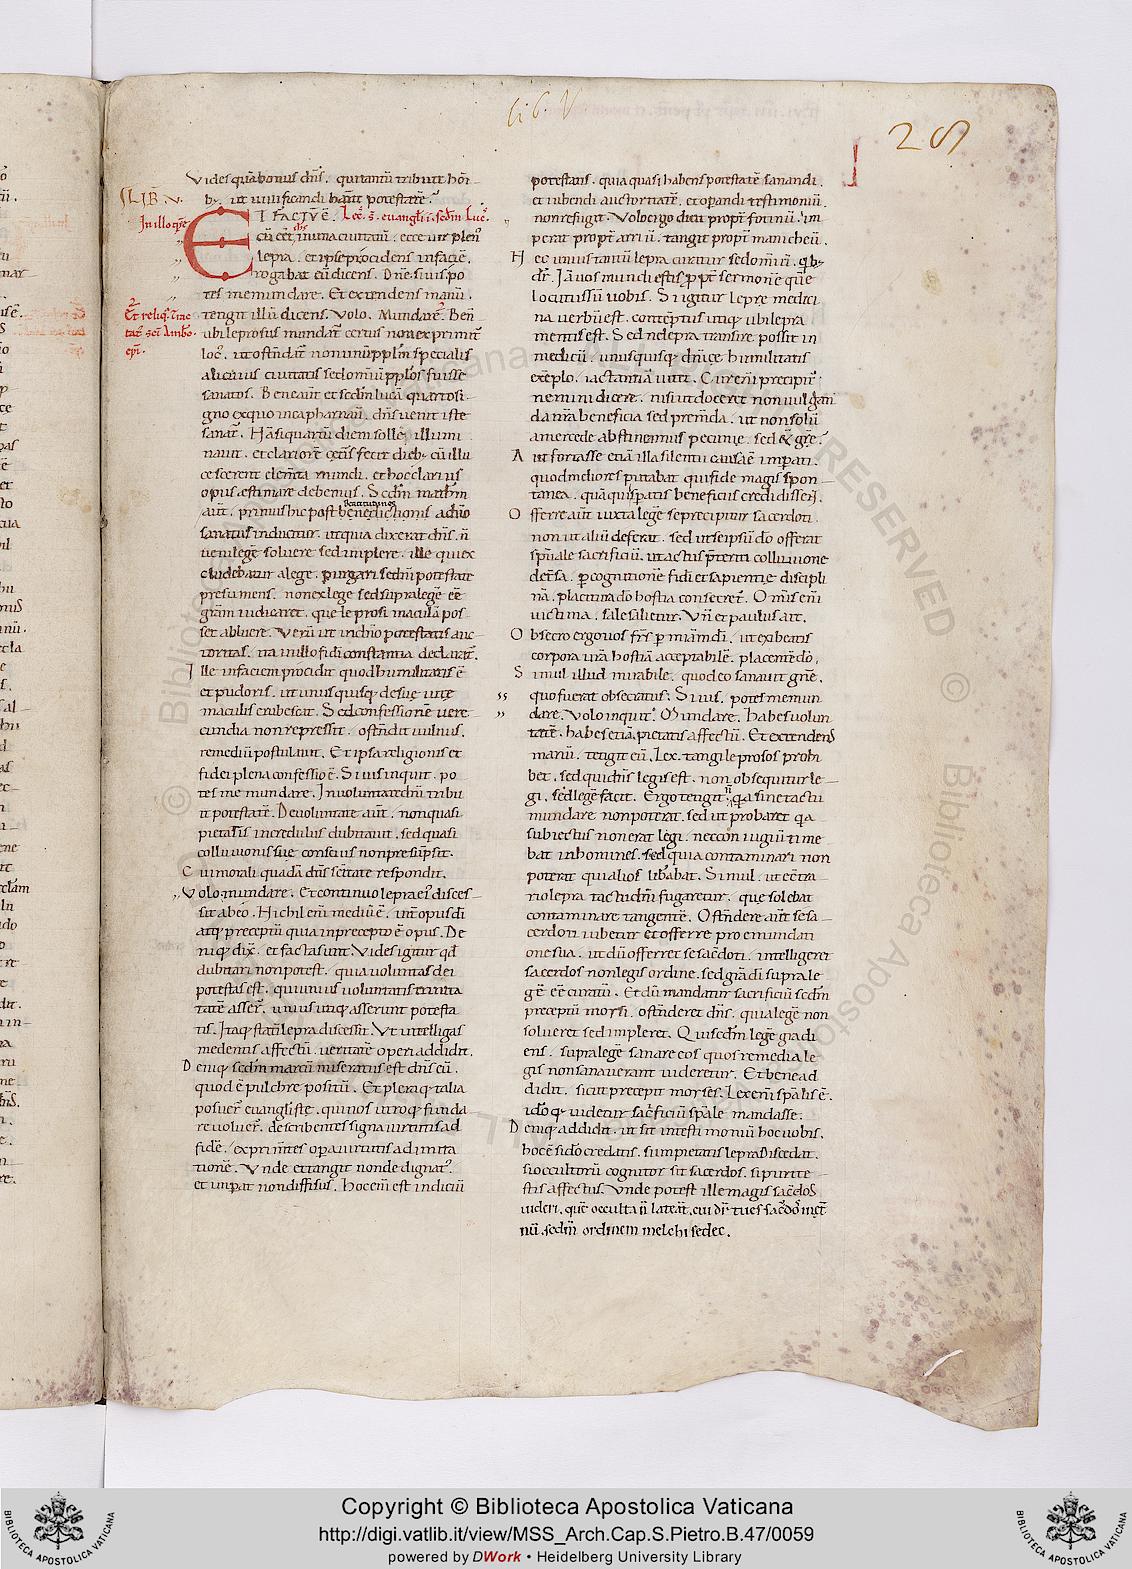 lib. V
28
Vides quā bonus dn̄s. qui tantū tribuit ho͞i
b;. ut uiuificandi haƀant potestatē.
LIB. V.
ET FACTŪ Ē.
Lec̄. s̄. euanḡli i. sc̄dm Luc̄.
In illo tp̄re
cū eēt ih̄s in una ciuitatū. ecce uir plen᷒
lepra. et ipse procidens in faciē.
rogabat eū dicens. Dn̄e si uis po
tes me mundare. Et extendens manū.
Et reliq̄. Trac
tat᷒ sc̄i Ambro.
ep̄i.
tetigit illū dicens. Volo. Mundare. Ben̄
ubi leprosus mundat᷒ certus non exprimit᷒
loc᷒. ut ostn̄dat᷒ non unū pp̄lm specialis
alicuius ciuitatis sed omniū pp̄los fuisse
sanatos. Bene aūt et sc̄dm lucā quarto si
gno ex quo in capharnaū. dn̄s uenit iste
sanat᷒.
nauit. et clariorē cęt̄is fecit dieb; cū illu
cescerent elem̄ta mundi. et hoc clarius
opus æstimare debemus. Sc̄dm math̄m
aūt. primus hic post benedictionis a dn̄o
beatitudines
sanatus inducitur. ut quia dixerat dn̄s. n̄
ueni legē soluere sed implere. ille qui ex
cludebatur a lege. purgari se dn̄i potestate
presumens. non ex lege sed supra legē eē
grām iudicaret. quę leprosi maculā pos
set abluere. Verū ut in dn̄o potestatis auc
toritas. ita in illo fidei constantia declarat᷒.
Ille in faciem procidit quod humilitatis ē
et pudoris. ut unusquisq; de suę uitę
maculis erubescat. Sed confessionē uere
cundia non repressit. ostn̄dit uulnus.
remediū postulauit. Et ipsa religionis et
fidei plena confessio ē. Si uis inquit. po
tes me mundare. In uoluntate dn̄i tribu
it potestatē. De uoluntate aūt. non quasi
pietatis incredulus dubitauit. sed quasi
colluuionis suę conscius non presūpsit.
Cui morali quadā dn̄s sc̄itate respondit.
Volo mundare. Et continuo lepra ei᷒ disces
sit ab eo. Nichil en̄i mediū ē. int̄ opus dī
atq; preceptū quia in precepto ē opus. De
niq; dix̄. et facta sunt. Vides igitur qd̄
dubitari non potest. quia uoluntas dei
potestas est.
tatē asser̄. unius utiq; asserunt potesta
tis. Itaq; statī lepra discessit. Ut intelligas
medentis affectū. ueritatē operi addidit.
Deniq; sc̄dm marcū miseratus est dn̄s eū.
quod ē pulchre positū. Et pleraq; talia
posuer̄ euangliste. qui nos utroq; funda
re uoluer̄. describentes signa uirtutis ad
fidē. exprimentes opera uirtutis ad imita
tionē. Unde et tangit non dedignat᷒.
et imperat non diffisus. hoc enī est indiciū
potestatis. quia quasi habens potestatē sanandi.
et iubendi auctoritatē. et operandi testimoniū
non refugit. Volo ergo dicit propt̄ fotinū. im
perat propt̄ arriū. tangit propt̄ manicheū.
Hec unius tantū lepra curatur sed omniū. qb;
dr̄. Iā uos mundi estis pp̄t sermonē quē
locutus sū uobis. Si igitur leprę medici
na uerbū est. contēptus utiq; ubi lepra
mentis est. Sed ne lepra transire possit in
medicū. unusquisq; dn̄icę humilitatis
exēplo. iactantiā uitet. Cur en̄i precipit᷒
nemini dicere. nisi ut doceret non uulgan
da nr̄a beneficia sed premēda. ut non solū
a mercede abstineamus pecunię. sed & grę̄.
Aut fortasse etiā illa silentii causa ē imperati.
quod meliores putabat qui fide magis spon
tanea. quā qui speratis beneficiis credidissen̄t.
Offerre aūt iuxta legē se precipitur sacerdoti.
non ut aliū deferat. sed ut se ipsū dō offerat
sp̄uale sacrificiū. ut actus p̄teriti colluuione
det̄sa. p cognitionē fidei et sapientię discipli
nā. placitura dō hostia consecret᷒. Omīs en̄i
uictima. sale salietur. Vn̄ et paulus ait.
Obsecro ergo uos fr̄s p mīam dī. ut exibeatis
corpora ur̄a hostiā acceptabilē. placentē dō.
Simul illud mirabile. quod eo sanauit gn̄e.
quo fuerat obsecratus. Si uis. potes me mun
dare. Volo inquit. Mundare. Habes uolun
tatē. habes etiā pietatis affectū. Et extendens
manū. tetigit eū. Lex tangi leprosos prohi
bet. sed qui dn̄s legis est. non obsequitur le
gi. sed legē facit. Ergo tetigit. n̄ qa sine tactu
mundare non poterat. sed ut probaret qa
subiectus non erat legi. nec contagiū time
bat in homines. sed quia contaminari non
poterat qui alios lib̄abat. Simul. ut e contra
rio lepra tactu dn̄i fugaretur. quę solebat
contaminare tangentē. Ostn̄dere aūt se sa
cerdoti iubetur et offerre pro emundati
one sua. ut dū offerret se sac̄doti. intelligeret
sacerdos non legis ordine. sed grā dī supra le
gē eē curatū. Et dū mandatur sacrificiū sc̄dm
preceptū moysi. ostn̄deret dn̄s. quia legē non
solueret sed impleret. Qui sc̄dm legē gradi
ens. supra legē sanare eos quos remedia le
gis non sanauerant uideretur. Et bene ad
didit. sicut precepit moyses. Lex en̄i sp̄alis ē.
idō q; uidetur sac̄ficiū sp̄ale mandasse.
Deniq; addidit. ut sit in testimoniū hoc uobis.
hoc ē si dō creditis. si impietatis lepra discedat.
si occultorū cognitor sit sacerdos. si puritę
stis affectus. Unde potest ille magis sac̄dos
uideri. quē occulta n̄ lateāt. cui dr̄ tu es sac̄dos in ęt̄
nū. sc̄dm ordinem melchisedec.
Copyright © Biblioteca Apostolica Vaticana
http://digi.vatlib.it/view/MSS_Arch.Cap.S.Pietro.B.47/0059
powered by DWork • Heidelberg University Library
BIBLIOTECA APOSTOLICA VATICANA
BIBLIOTECA APOSTOLICA VATICANA